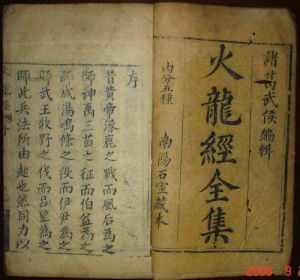 諸葛武侯編輯
火龍經全集
內分五種
南陽石室藏本
序
昔黃帝涿鹿之戰而風后為之
師神禹三苗之征而伯益為之
師成湯鳴條之役而伊尹為之
師武王牧野之伐而呂望為之
師此兵法所由起也然同力以